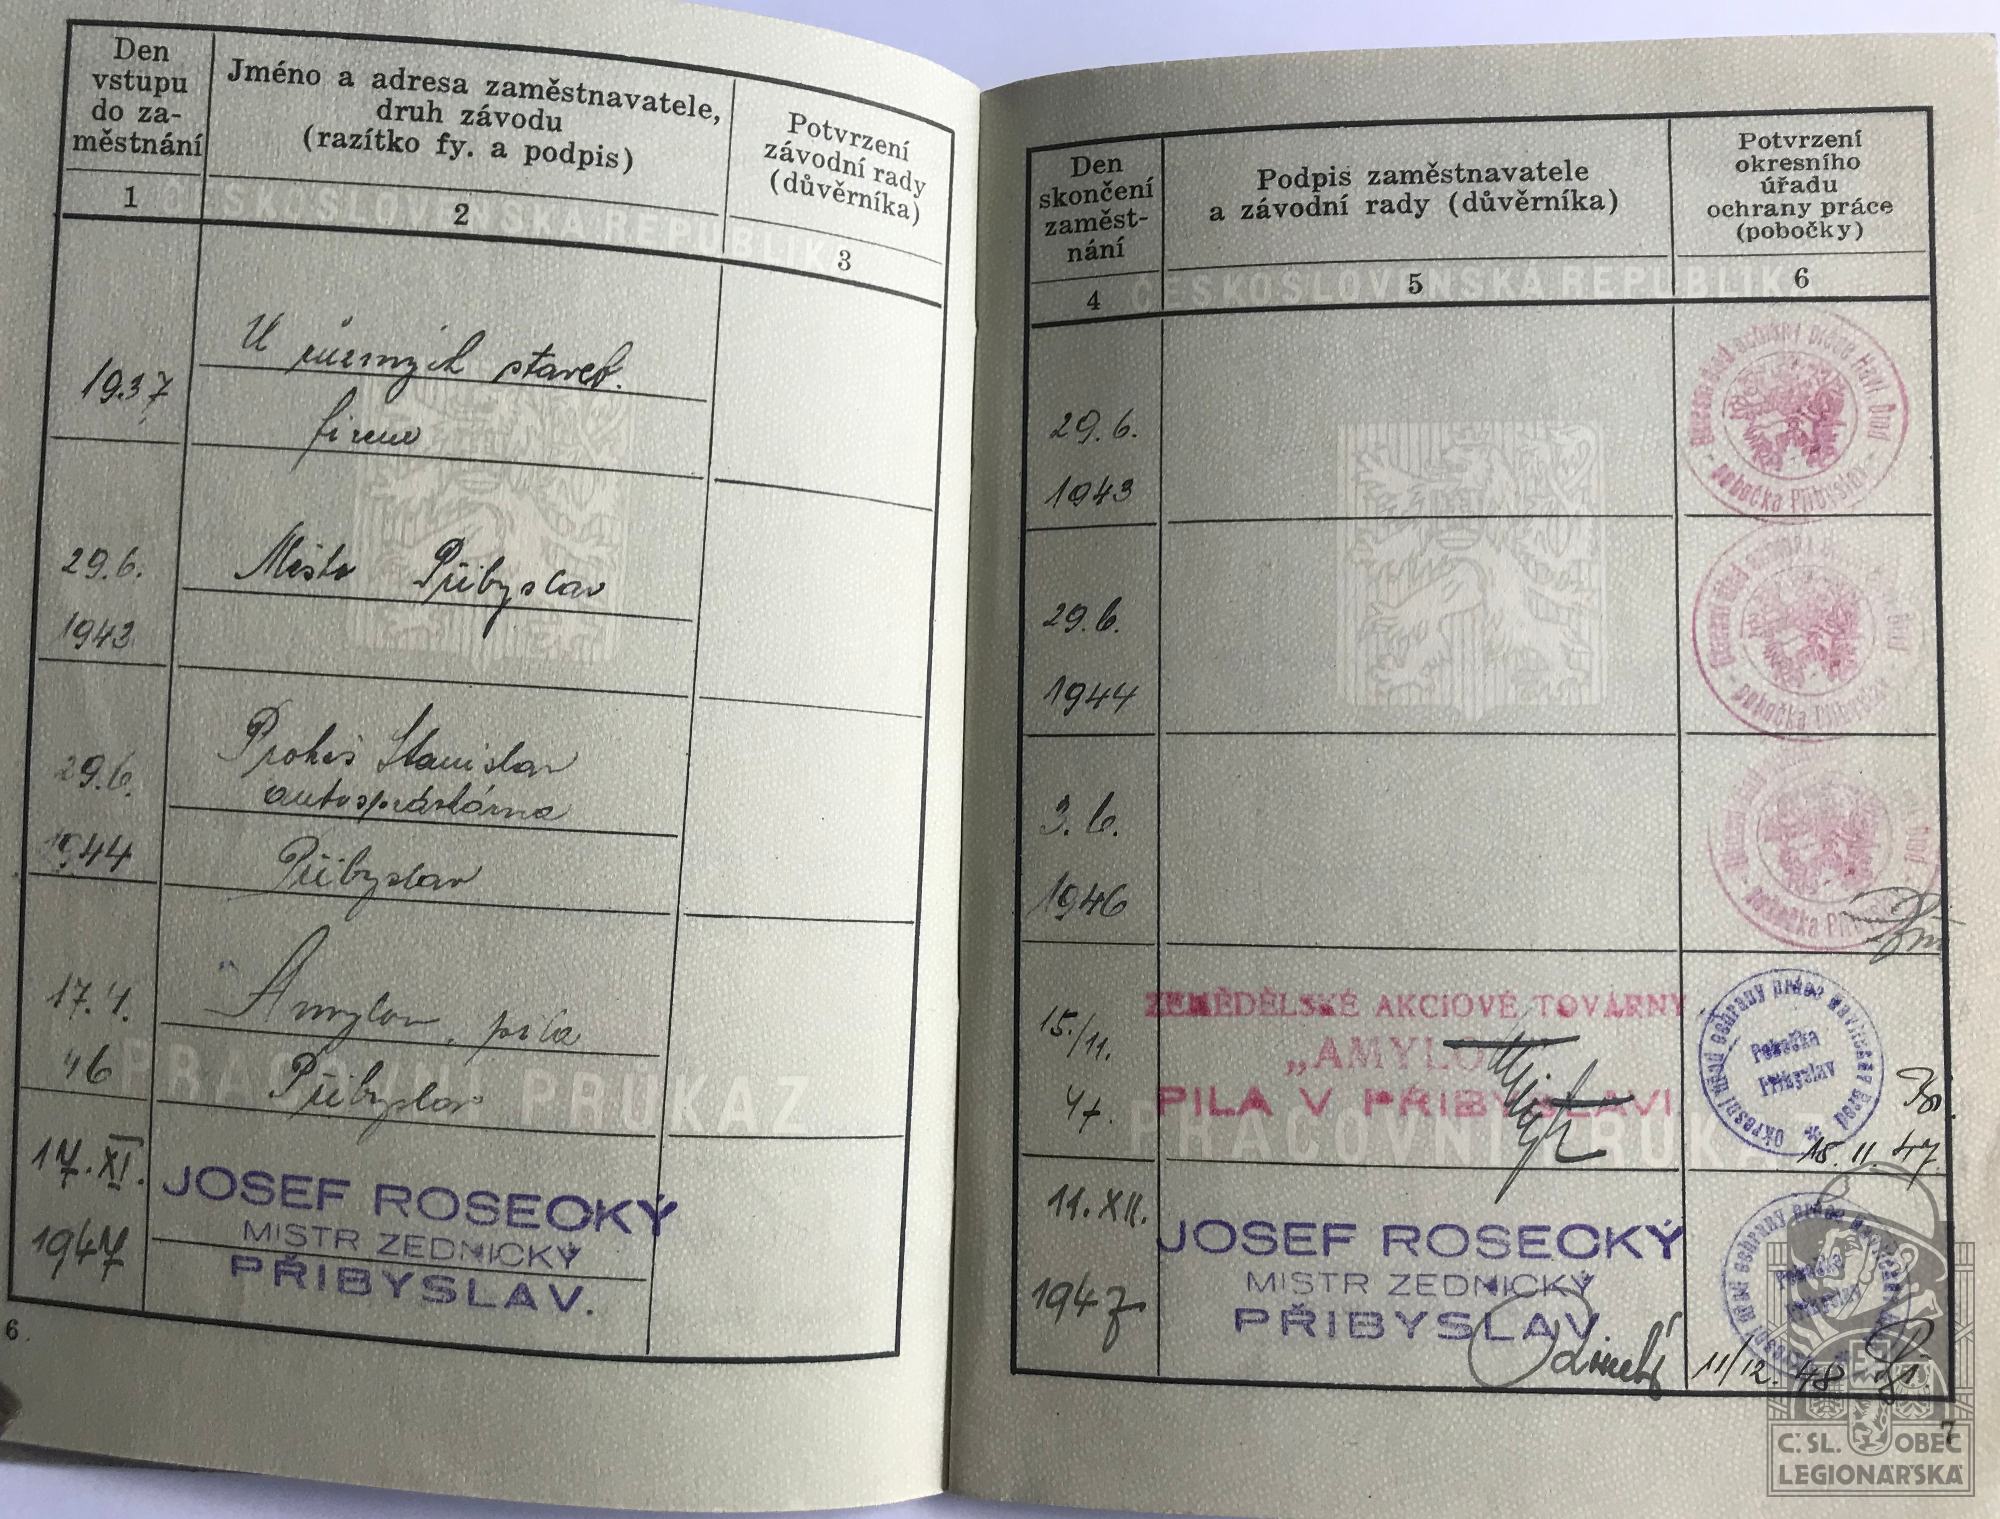 Den
vstupu
do za-
městnání
Jméno a adresa zaměstnavatele,
druh závodu
(razítko fy. a podpis)
Potvrzení
závodní rady
(důvěrníka)
1
2
3
ČESKOSLOVENSKÁ REPUBLIKA
1937
U různých staveb.
firem
29.6.
1943
Město Přibyslav
29.6.
1944
Stanislav
autosprávkárna
Přibyslav
17.4.
46
Amylon, pila
Přibyslav
PRACOVNÍ PRŮKAZ
17.XI.
1947
JOSEF ROSECKÝ
MISTR ZEDNICKÝ
PŘIBYSLAV.
6.
Den
skončení
zaměst-
nání
Podpis zaměstnavatele
a závodní rady (důvěrníka)
Potvrzení
okresního
úřadu
ochrany práce
(pobočky)
4
5
6
ČESKOSLOVENSKÁ REPUBLIKA
29.6.
1943
Okresní úřad ochrany práce Havl. Brod
- pobočka Přibyslav -
29.6.
1944
Okresní úřad ochrany práce Brod
- pobočka Přibyslav -
3.6.
1946
pobočka
15./11.
47.
ZEMĚDĚLSKÉ AKCIOVÉ TOVÁRNY
„AMYLON"
PILA V PŘIBYSLAVI
Okresní úřad ochrany práce Havlíčkův Brod
Pobočka
Přibyslav
15.11.47.
PRACOVNÍ PRŮKAZ
11.XII.
1947
JOSEF ROSECKÝ
MISTR ZEDNICKÝ
PŘIBYSLAV.
Pobočka
Přibyslav
11/12.48
7
Č.SL. OBEC
LEGIONÁŘSKÁ